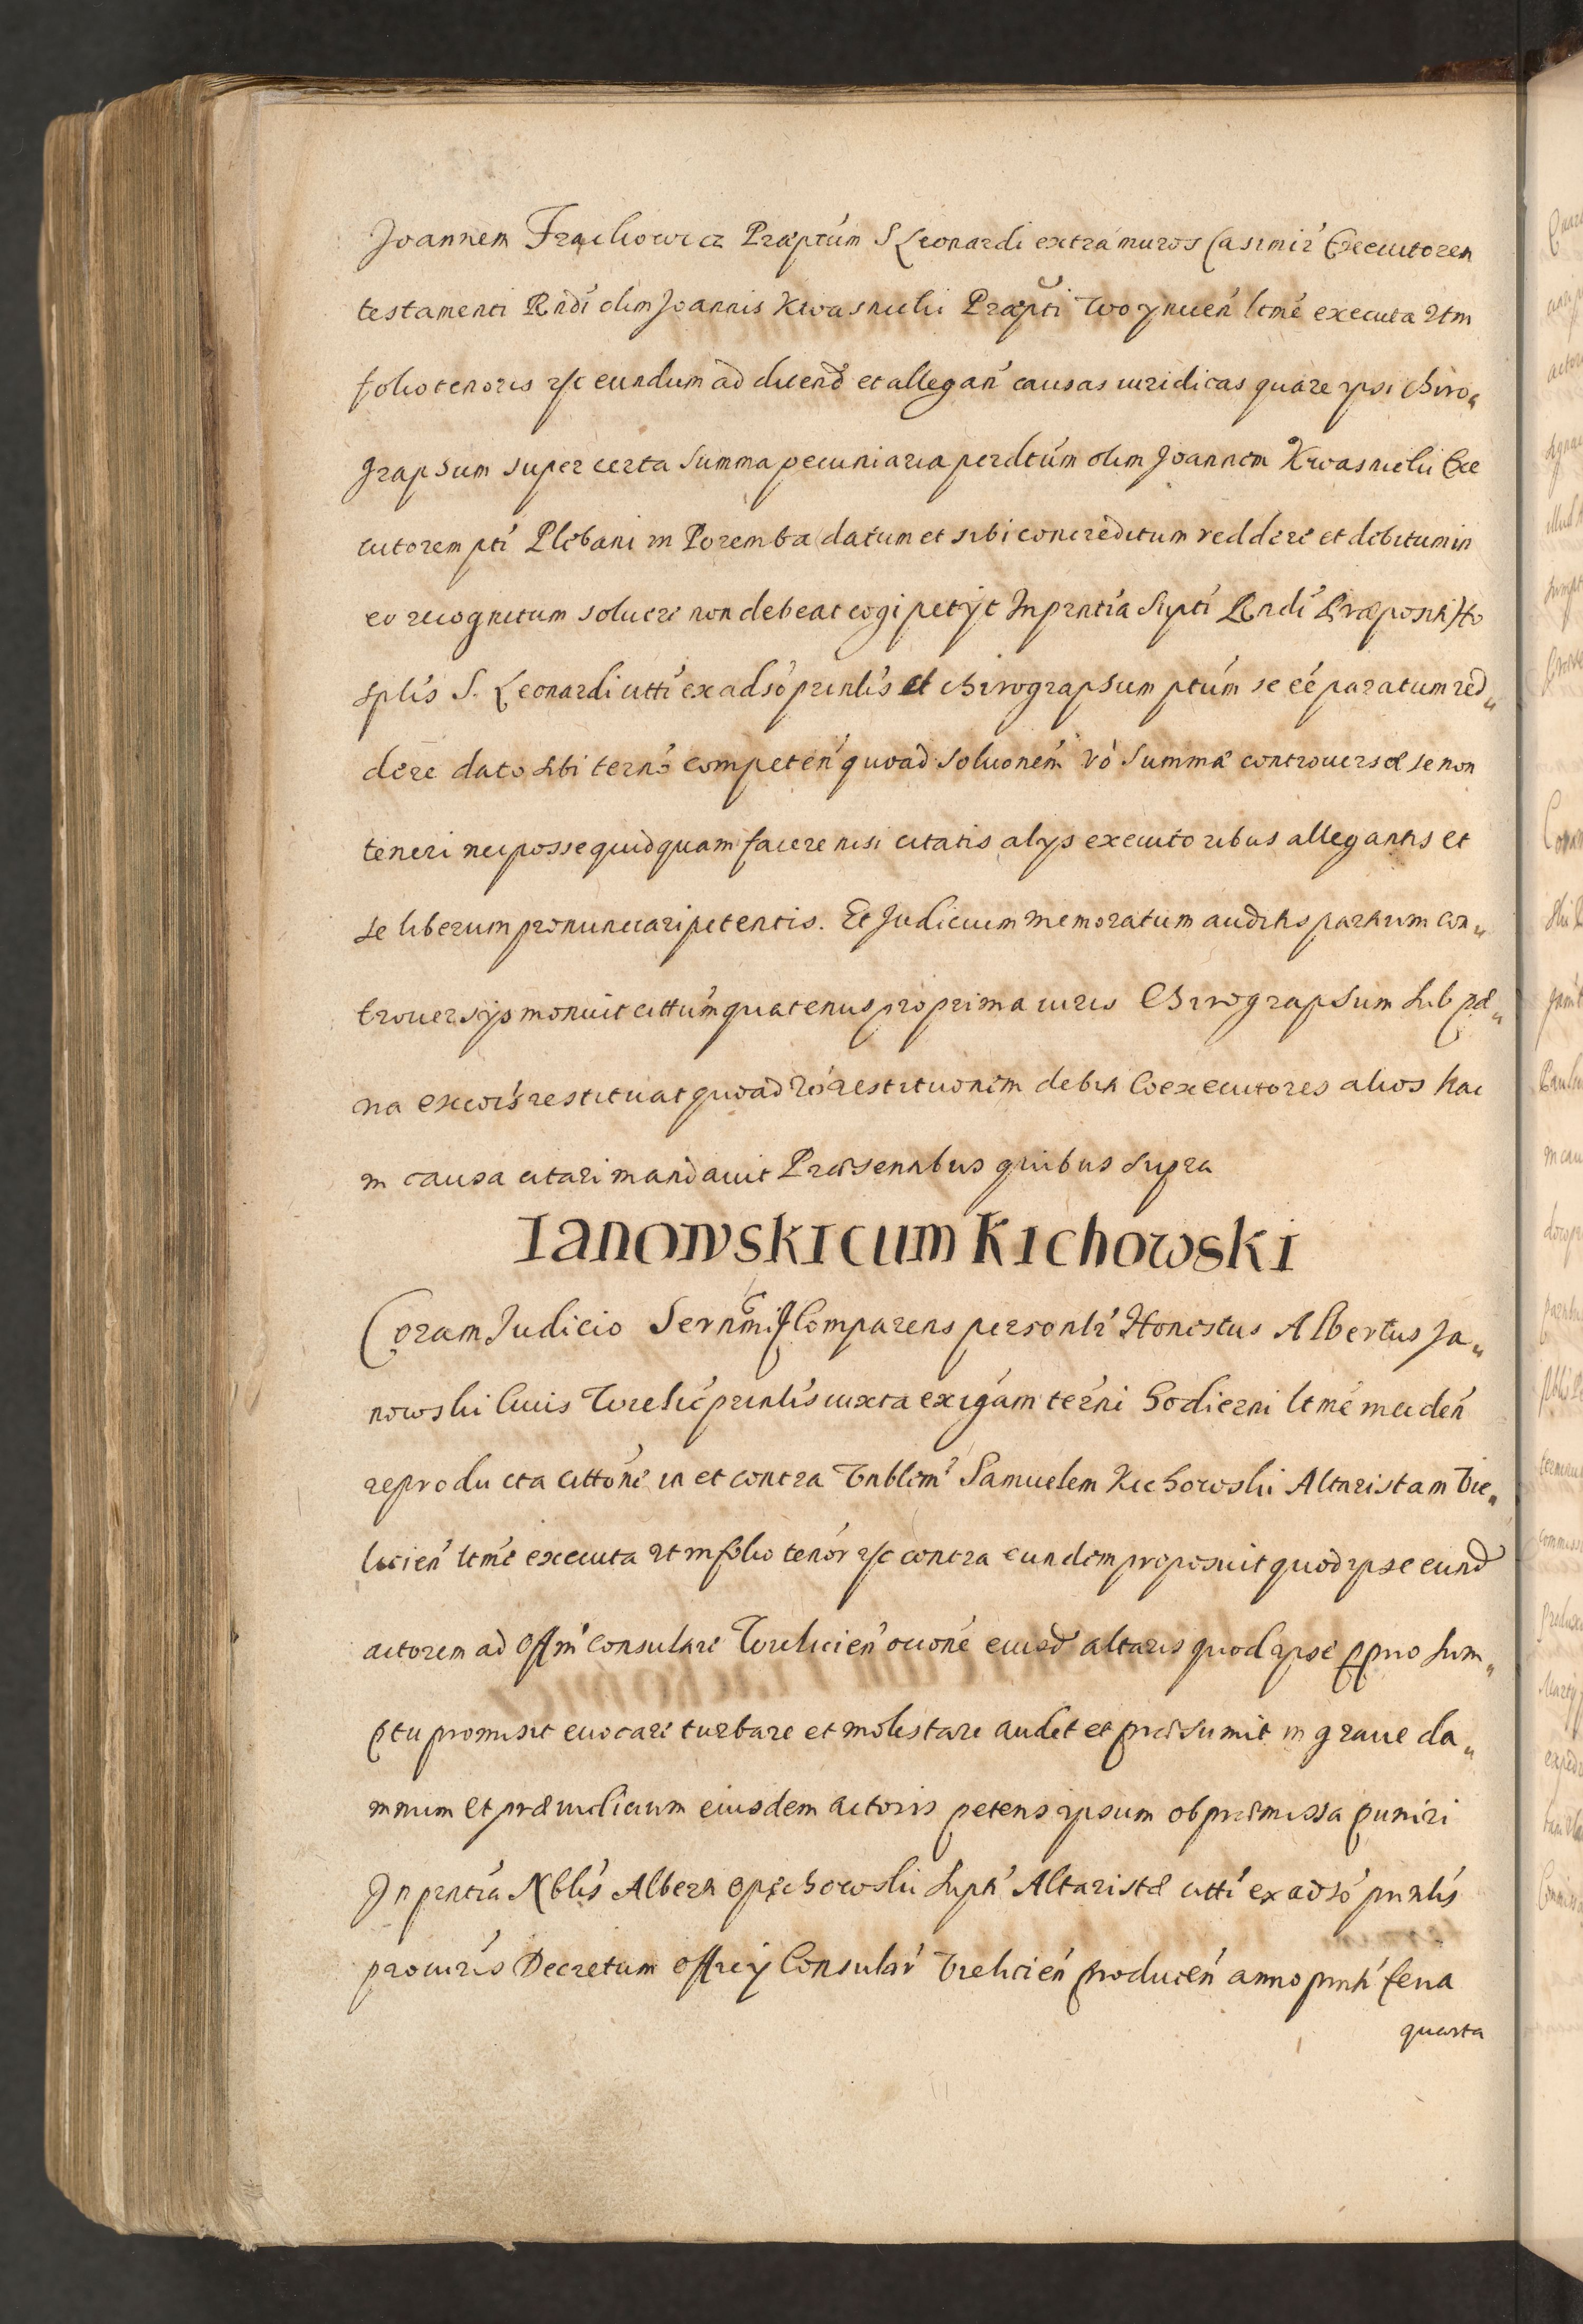 Joannem Frąckowicz Præptúm S Leonardi extra muros Casimir' Executorem
testamenti Rndi olim Joannis Kwasnicki Præpti Woynicen' ltme executa Itm
folio tenoris rsc eundum ad dicend et allegan' causas iuridicas quare ipsi chiro„
grapsum super certa summa pecuniaria per dtúm olim Joannem Kwasnicki Exe
cutorem pti Plebani in Poremba datum et sibi concreditum reddere et debitum in
eo recognitum soluere non debeat cogi petÿt In pntia supti Rndi Præpositi Ho
splis S. Leonardi citti ex adso prntis et chirograpsum ptúm se eé paratum red„
dere dato sibi terno competen' quoad soluonem vo' summæ controuersæ se non
teneri nec posse quidquam facere nisi citatis alys executoribus allegantis et
se liberum pronunciari petentis. Et Judicium memoratum auditis partium con„
trouersijs monuit cittúm quatenus pro prima iuris Chirograpsum sub pæ„
na excois restituat quoad vo' restituonem debiti Coexecutores alios hac
in causa citari mandauit Præsentibus quibus supra
IANOWSKI CUM KICHOWSKI
Coram Judicio Sernmi Comparens personlr' Honestus Albertus Ja„
nowski Ciuis Wielic' prntis iuxta exigám térni hodierni ltme inciden'
reproducta cittone in et contra Vnblem' Samuelem Kichowski Altaristam Vie„
licien' ltme executa Itm folio tenor' rsc contra eundem proposuit quod ipse eund
actorem ad Offm' consulare Wielicien' ocone eiusd altaris quod ipse ppuo sum„
ptu promisit euocare turbare et molestare audet et præsumit in graue da„
mnum et præiudicium eiusdem actoris petens ipsum ob præmissa puniri
In pntia Nblis Alberti Opichowski supti' Altaristæ citti' ex adso' prntis
procuris Decretum Officij Consular' Vielicien' producen' anno prnti' feria
quarta